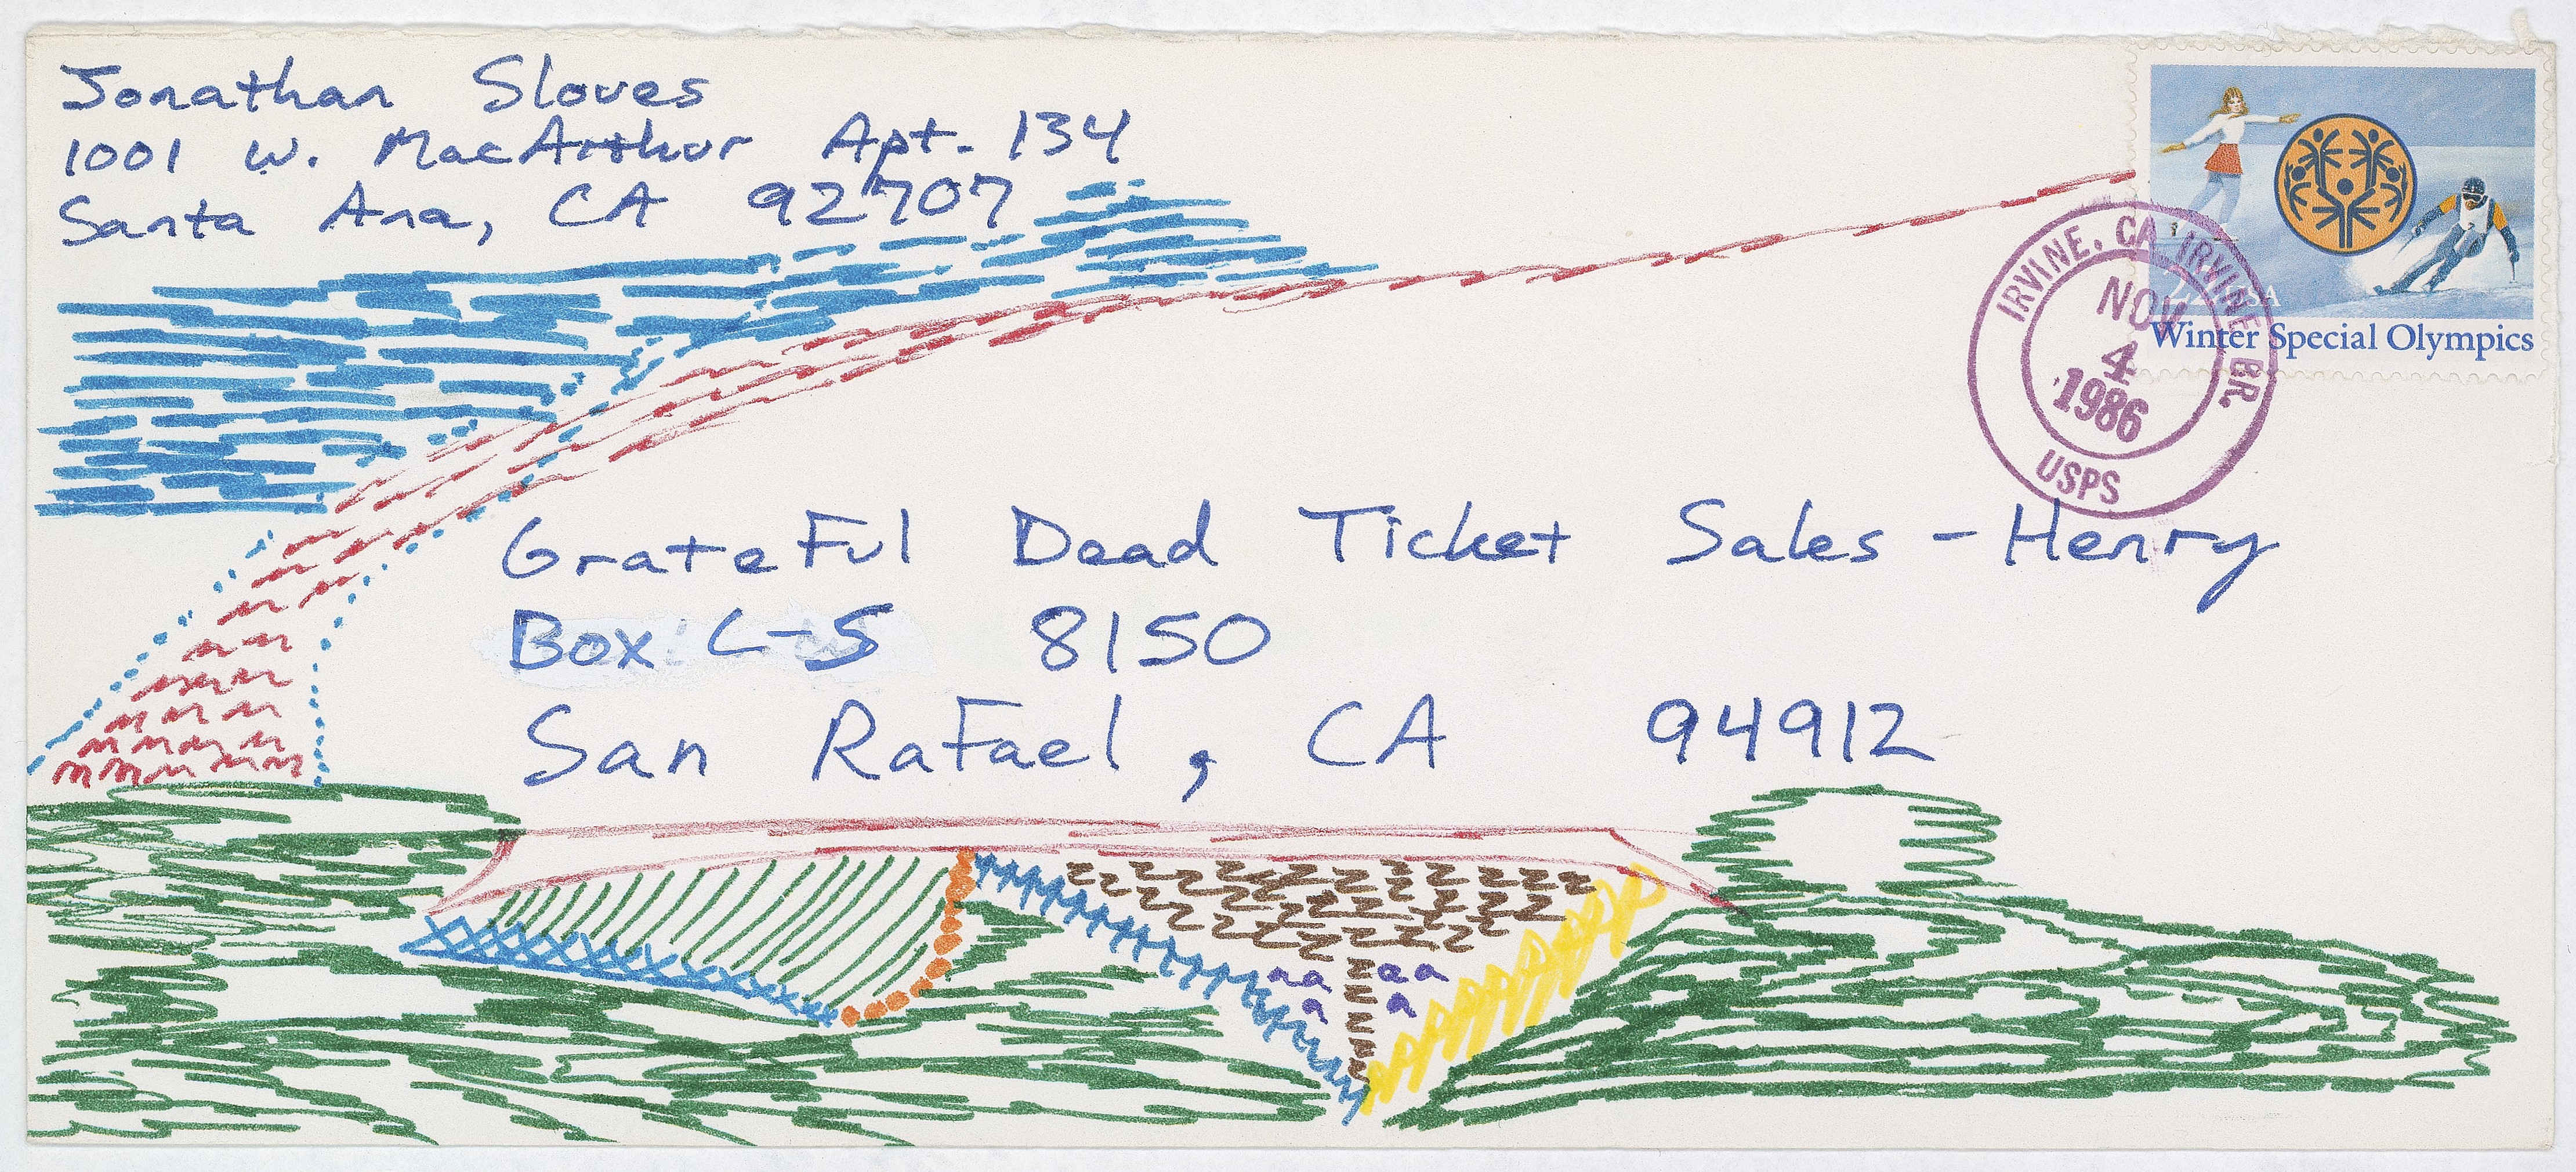 Jonathan Sloves
1001 W. MacArthur Apt. 134
Santa Ana, CA 92707
Winter Special Olympics
IRVINE, CA IRVINE BR.
NOV
4
1986
USPS
Grateful Dead Ticket Sales - Henry
Box C-S 8150
San Rafael, CA 94912